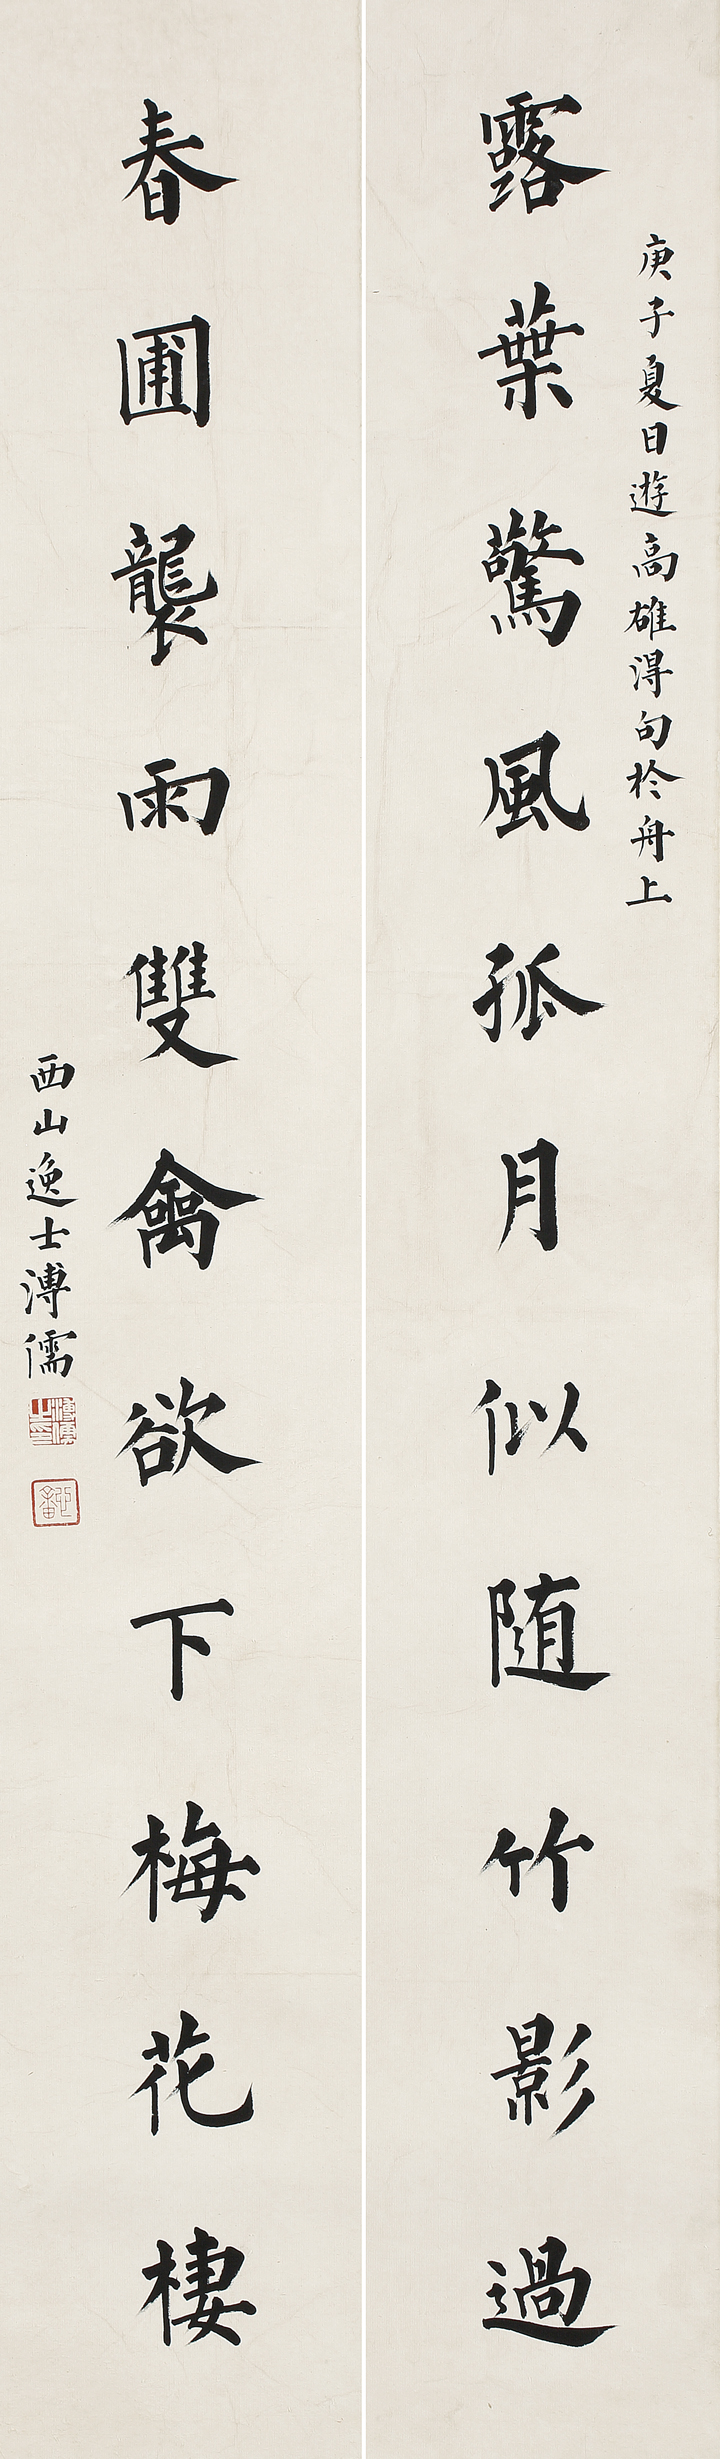 庚子夏日遊高雄得句於舟上
露葉驚風孤月似随竹影過
春圃襲雨雙禽欲下梅花棲
西山逸士溥儒
溥儒之印